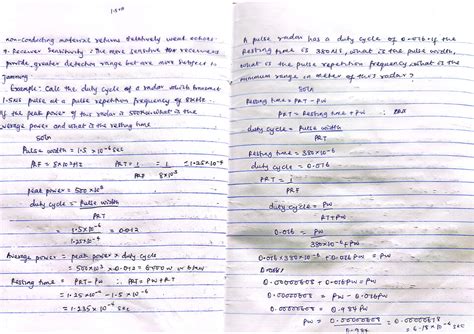 non-conducting material returns relatively weak echoes
4. Receiver Sensitivity : The more sensitive the receivers
provide, greater detection range but are more subject to
jamming
Example: Calc the duty cycle of a radar which transmit
1.5NS pulse at a pulse repetition frequency of 8KHz.
If the peak power of this radar is 500KW. what is the
average power and what is the resting time
Soln
Pulse width = 1.5 x 10^-6 sec
PRF = 8x10^3 Hz PRT = 1 = 1 = 1.25x10^-4
PRF 8x10^3
peak power = 500 x10^3
duty cycle = Pulse width
PRT
= 1.5 x10^-6 = 0.012
1.25x10^-4
Average power = peak power x duty cycle
= 500x10^3 x 0.012 = 6000 W or 6kw
Resting time = PRT - PW
= 1.25 x10^-4 - 1.5 x10^-6
= 1.235 x10^-4 sec
A pulse radar has a duty cycle of 0.016. If the
Resting time is 380NS, what is the pulse width,
what is the pulse repetition frequency. what is the
minimum range in meter of this radar?
Soln
Resting time = PRT - PW
PRT = Resting time + PW
duty cycle = Pulse width
PRT
Resting time = 380 x10^-6
duty cycle = 0.016
PRT = 1
PRF
duty cycle = PW
RT+PW
0.016 = PW
380x10^-6 + PW
0.016 x 380x10^-6 + 0.016 PW = PW
0.00000608 + 0.016PW = PW
0.00000608 = 0.984PW
PW = 0.00000608
0.984
= 6.18 x10^-6 sec